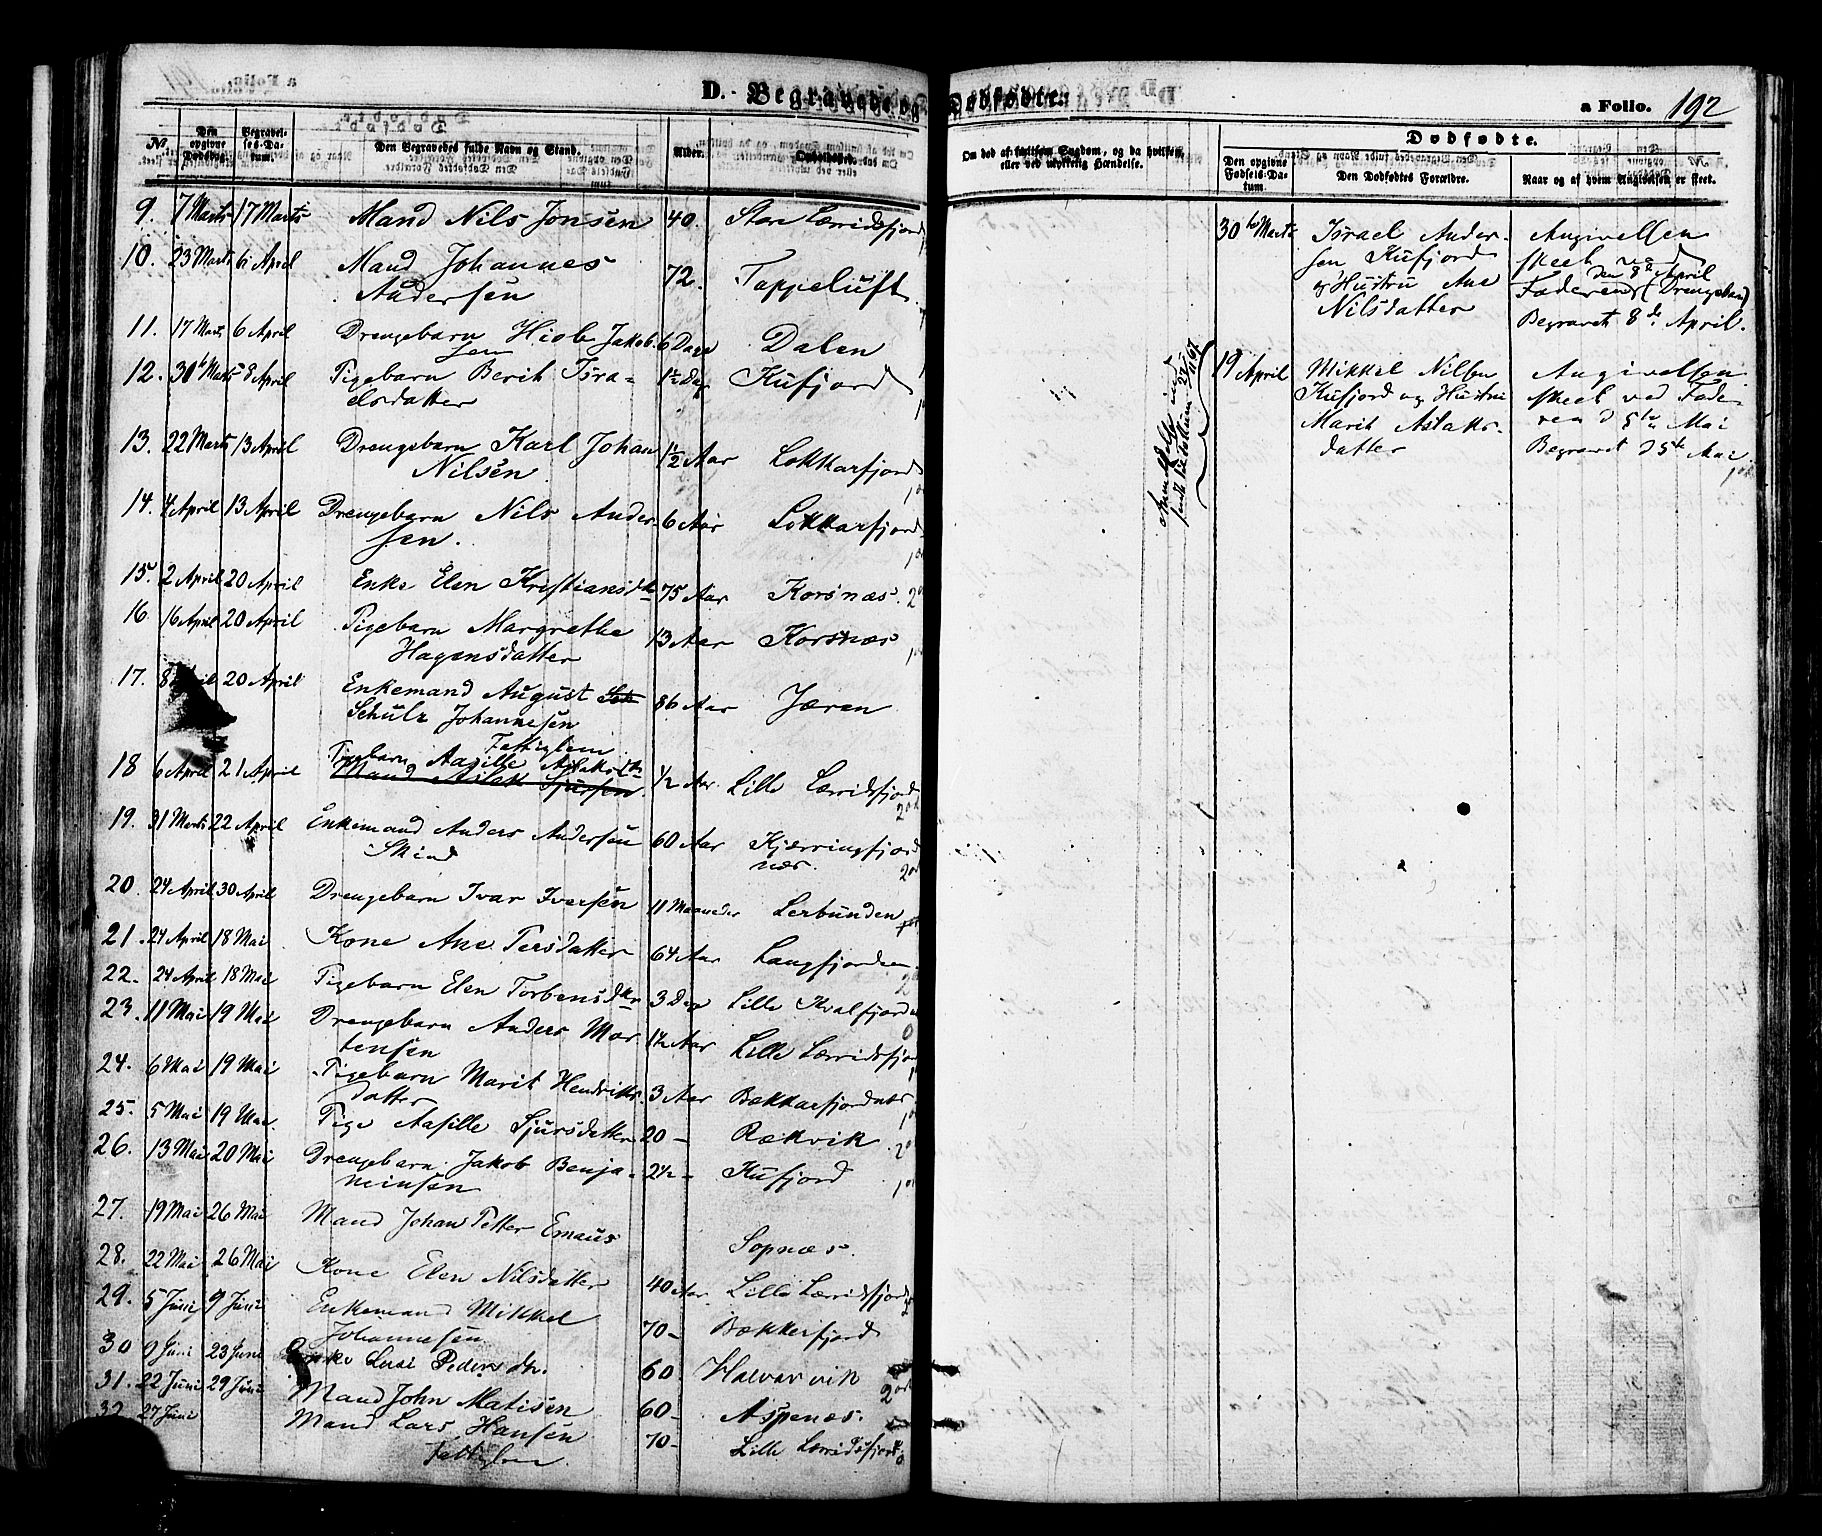 D. Begravede og Dødfødte.
a Folio. 192
No. Den opgivne Dødsdag. Begravelses-Datum. Den Begravedes fulde Navn og Stand. Alder. Opholdssted.
9. 7 Marts 17 Marts Mand Nils Jonsen 40. Store Lerridsfjord
10. 23 Marts 6 April Mand Johannes
Andersen 72. Tappeluft
11. 17 Marts 6 April Drengebarn Hiob Jakob
sen 6 Dage Dalen
12. 30 Marts 8 April Pigebarn Berit Isra-
elsdatter 1½ Dag Kufjord
13. 22 Marts 13 April Drengebarn Karl Johan
Nilsen 1½ Aar Lokkarfjord
14. 4 April 13 April Drengebarn Nils Ander
sen. 6 Aar Lokkarfjord
15. 2 April 20 April Enke Elen Kristiansdtr 75 Aar Korsnæs.
16 16 April 20 April Pigebarn Margrethe
Hagensdatter 13 Aar Korsnæs
17. 8 April 20 April Enkemand August
Schulz Johannesen 86 Aar Jæren
Fattiglem
18 6 April 21 April Pigebarn Aasille Aslaksdtr
Mand Aslak Sjursen ½ Aar. Lille Lerridsfjord
19. 31 Marts 22 April Enkemand Anders Andersen
Skind 60 Aar Kjerringfjord
næs.
20. 24 April 30 April Drengebarn Ivar Iversen 11 Maaneder Lerbunden
21. 24 April 18 Mai Kone Ane Persdatter 64 Aar Langfjorden
22. 24 April 18 Mai Pigebarn Elen Torbensdtr 3 Dag Lille Kvalfjord
23. 11 Mai 19 Mai Drengebarn Anders Mor
tensen 1½ Aar Lille Lerridsfjord
24. 6 Mai 19 Mai Pigebarn Marit Hendriks
datter 3 Aar Bekkarfjordnæs
25. 5 Mai 19 Mai Pige Aasille Sjursdatter 20 - Rækvik
26. 13 Mai 20 Mai Drengebarn Jakob Benja-
minsen 2½ - Kufjord
27. 19 Mai 26 Mai Mand Johan Petter Emaus Sopnæs.
28. 22 Mai 26 Mai Kone Elen Nilsdatter 40 Aar. Lille Lerridsfjord
29. 5 Juni 9 Juni Enkemand Mikkel
Johannesen 70 - Bekkerfjord
30 9 Juni 23 Juni Enke Lusi Pedersdtr. 60 Halvarvik
31. 22 Juni 29 Juni Mand John Matisen 60 - Aspenæs.
32. 27 Juni Mand Lars Hansen 70 - Lille Lerridsfjord
Fattiglem
Om død af hvilken Sygdom, og da hvilken,
eller ved ulykkelig Hændelse.
Dødfødte.
Den opgivne Fødsels-Datum. Den Dødfødtes Forældre. Naar og af hvem Angivelsen er skeet.
30 Marts Israel Ander-
sen Kufjord
og Hustru Ane
Nilsdatter
Angivelsen
skeet ved
den 8de April
Faderen (Drengebarn)
Begravet 8de April.
19 April Mikkel Nilsen
Kufjord og Hustru
Marit Aslaks-
datter
Angivelsen
skeet ved Fade-
ren d 5te Mai
Begravet d 5te Mai